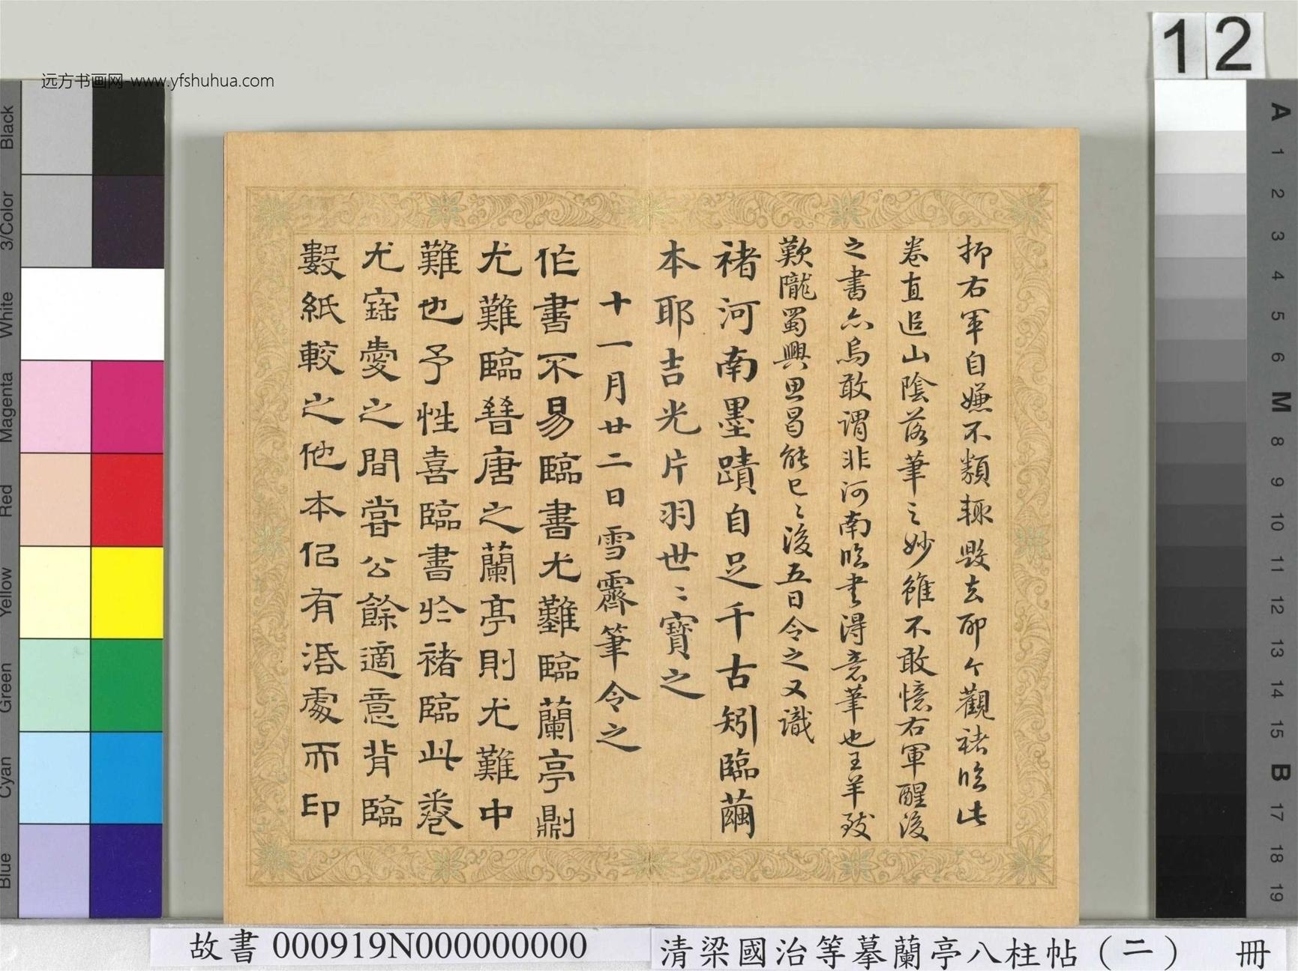 远方书画网-www.yfshuhua.com
12
抑右軍自嫌不類輒毀去耶今觀褚臨此
卷直追山陰落筆之妙雖不敢憶右軍醒後
之書亦烏敢謂非河南臨書得意筆也王羊致
歎隴蜀興思曷能已已後五日令之又識
褚河南墨蹟自足千古矧臨蘭
本耶吉光片羽世世寶之
十一月廿二日雪霽筆令之
作書不易臨書尤難臨蘭亭劘
尤難臨晉唐之蘭亭則尤難中
難也予性喜臨書於褚臨此卷
尤寤愛之間嘗公餘適意背臨
數紙較之他本侣有湣處而印
Black
3/Color
White
Magenta
Red
Yellow
Green
Cyan
Blue
A
1
2
3
4
5
6
M
8
9
10
11
12
13
14
15
B
17
18
19
故書 000919N000000000
清梁國治等摹蘭亭八柱帖（二） 冊